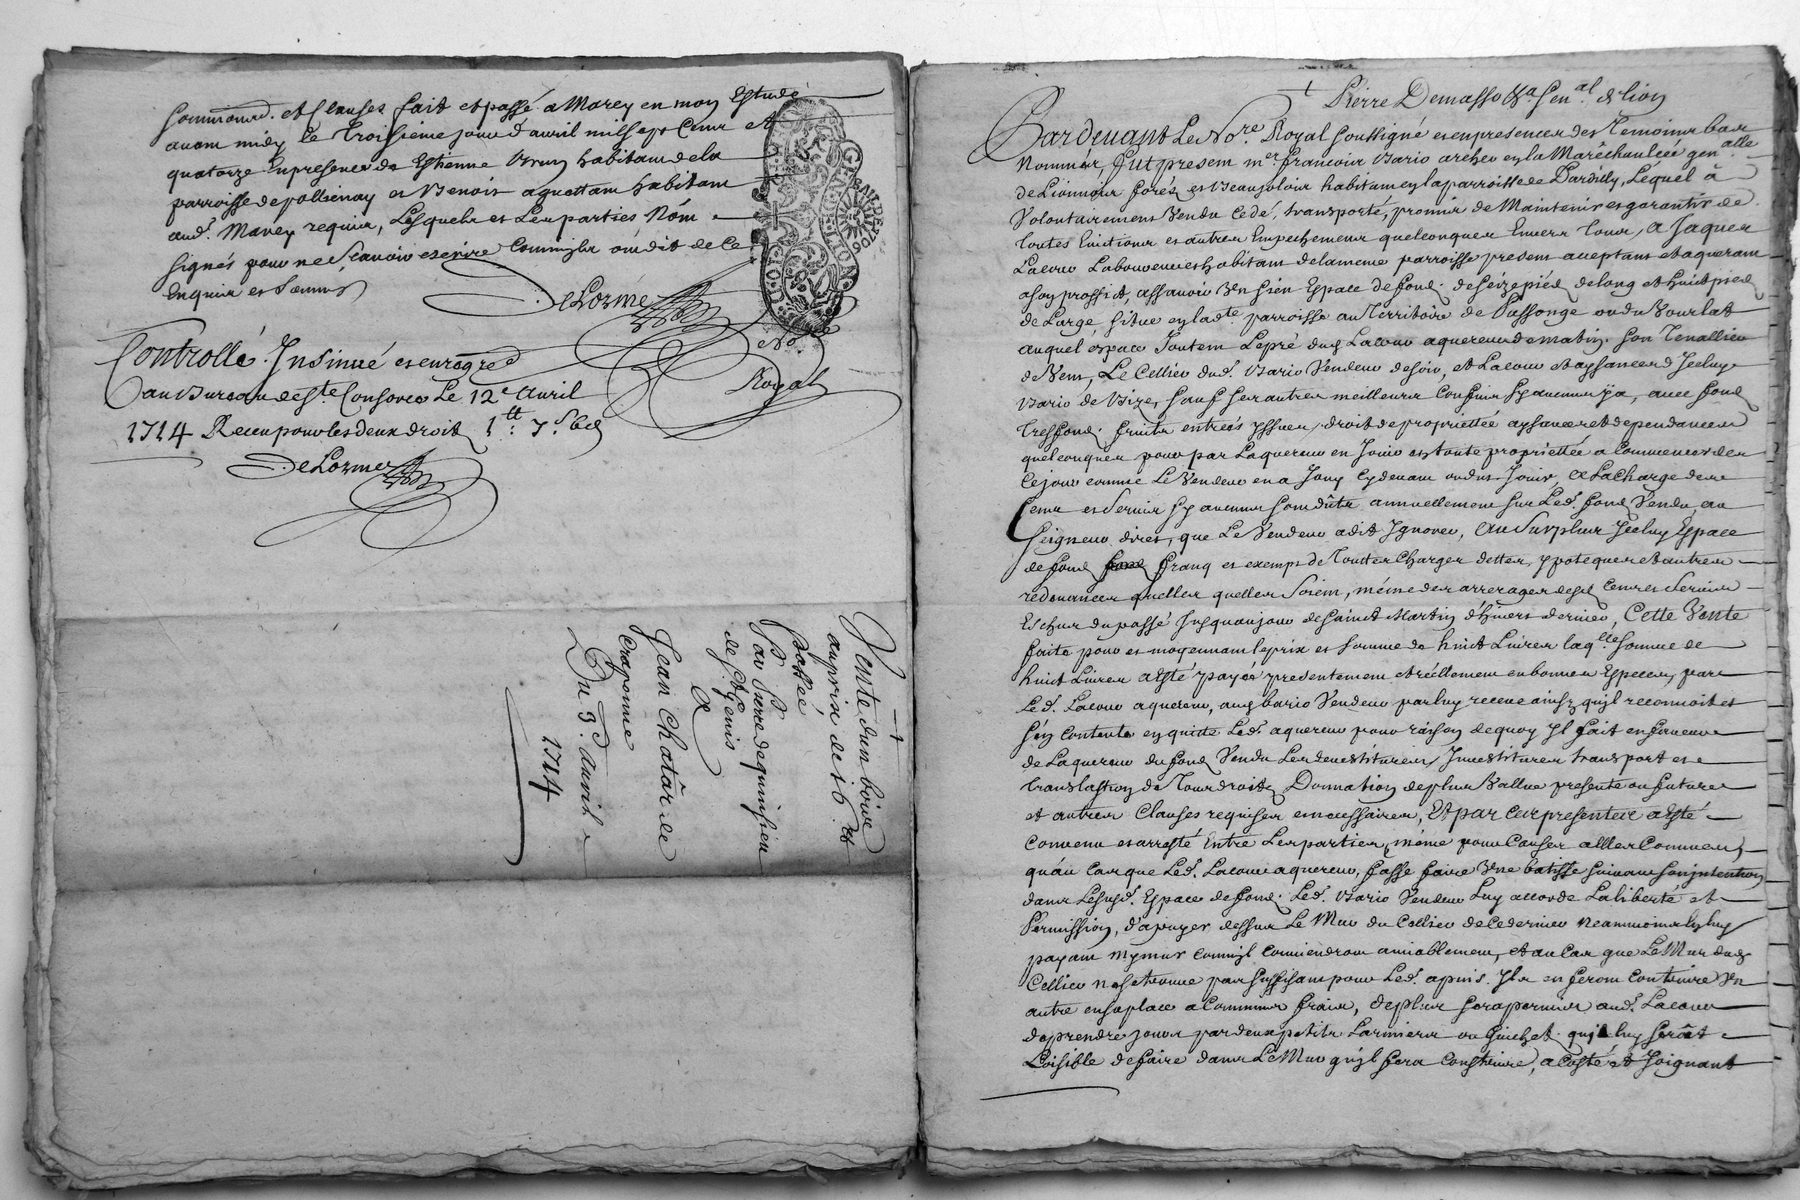 Sommiond. et Clauses fait et passé a Marcy en mon Estude
avant midy le troisieme jour d'avril mil sept cent et
quatorze En presence de Estienne Brun habitant de la
parroisse de pollienay et Benoist aguettant habitant
aud. Marcy requis, Lesquels et Les parties N'ont
signés pour ne sçavoir escrire Comm'ils ont dit de Ce
Enquis et Sommés
DeLorme
No.re
Royal
Controllé Insinué et enregré
au Bureau de S.te Consorce Le 12e Avril
1714 Receu pour les deux droits 1tt: 7s 6d
DeLorme
GE. BAUX DE 1706
G. DE LION
Vente d'un boive
au prix de 16.tt
Passée
Par Pierre dequinsieu
de S.t Genis
A
Jean Chatârd de
Craponne
Du 3.e Avril
1714
Pierre Demasso Sen.al de lion
Pardevant Le No.re Royal soussigné et en presence des Temoins bas
Nommés, fut present m.er francois Bario archer en la Maréchaussée gen.alle
de Lionnois forés et Beaujolois habitant en la parroisse de Dardilly, Lequel a
Volontairement Vendu cedé, transporté, promis de Maintenir et garantir de
toutes Evictions et autres Empechements quelconques Envers tous, A Jaques
Lacour Laboureur et habitant de la meme parroisse present acceptant et aquerant
a son proffit, assavoir Un sien Espace de fond de séize pied de long et huict pied
de Large, situé en lad.te parroisse au Territoire de Passonge ou du Bourlat
auquel espace Joutent Le pré dud. Lacour aquereur de matin, son Tenallier
de Vent, Le Cellier dud. Bario Vendeur de soir, et La cour et aysances d'Jceluy
Bario de Bize, sauf ses autres meilleurs Confins sy aucuns y a, avec fond
Tresfond fruits entrées yssues, droit de propriettée aysances et dependances
quelconques pour par L'aquereur en Jouir en toute propriettée a Commencer des
Ce jour comme Le Vendeur en a Jouy cy devant ou dut Jouir, A La Charge des
Cens et Servis sy aucuns sont dûts annuellement sur Led. fond Vendu, au
Seigneur direct, que Le Vendeur a dit Ignorer, Au Surplus Jceluy Espace
de fond franq et exempt de Toutes Charges dettes, ypoteques et autres
redevances quelles quelles Soient, méme des arrerages desd. Cens et Servis
Escheus du passé Jusqu'au jour de Sainct Martin d'hivers dernier, Cette Vente
faite pour et moyennant le prix et somme de huict Livres laq.lle somme de
huict Livres a Esté payée presentement et réellement en bonnes Especes, par
Led. Lacour aquereur, aud. bario Vendeur par luy receue ainsy qu'il reconnoit et
s'en contente en quitte Led. aquereur pour raison de quoy Jl fait en faveur
de L'aquereur du fond Vendu Les devestitures, Jnvestitures transport et
translation de Tous droits, Donnation de plus Vallue presente ou future
et autres Clauses requises et necessaires, Et par Ces presentes a Esté
Convenu et arresté Entre Les parties, méme pour Causer a Elles Connues,
qu'au Cas que Led. Lacour aquereur, fasse faire Une batisse suivant son Jntention
dans Le susd. Espace de fond. Led. Bario Vendeur Luy accorde La liberté et
Permission, d'apuyer dessus Le Mur du Cellier de Ce dernier neanmoins En luy
payant Comm'jl Conviendront amiablement, et au Cas que Le Mur dud.
Cellier ne se treuve pas suffisant pour Led. apuis. Jls en feront Construire Un
autre en sa place a Communs frais, De plus sera permis aud. Lacour
de prendre jours par deux petits Larmiers ou Guichet qu'jl luy serat
Loisible de faire dans Le Mur qu'jl fera Construire, a Costé et Joignant